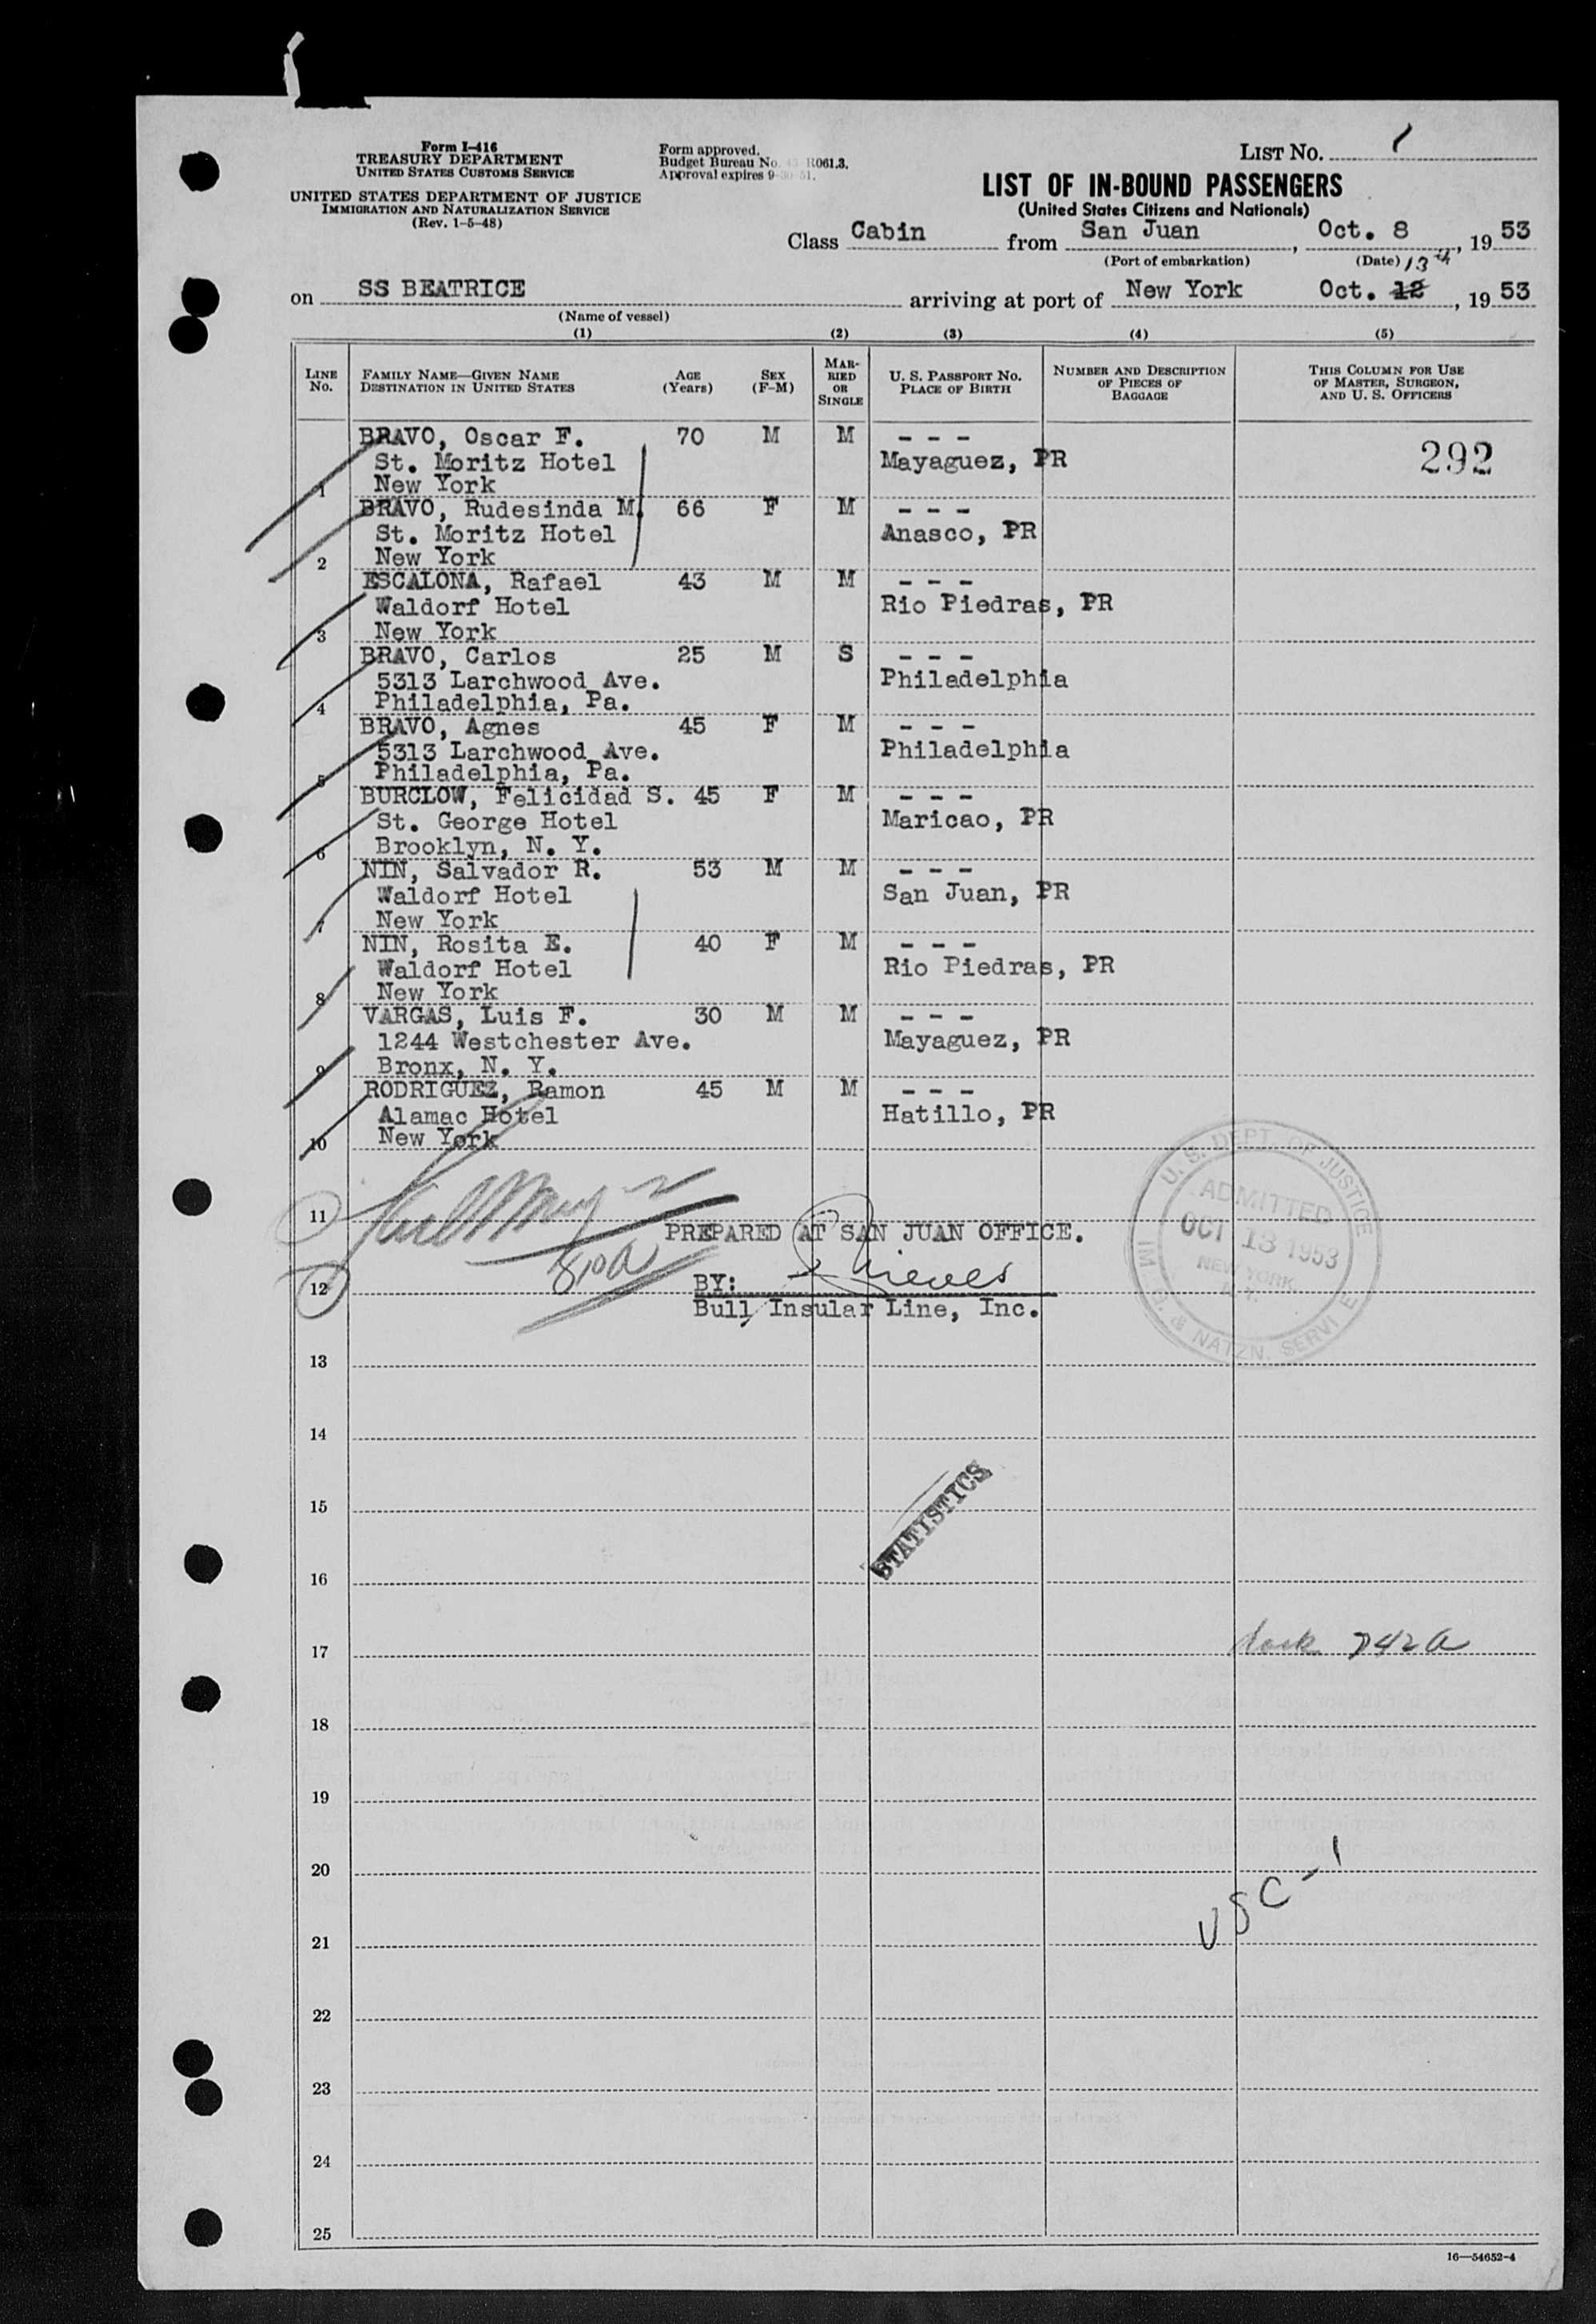 Form I-416
TREASURY DEPARTMENT
UNITED STATES CUSTOMS SERVICE
UNITED STATES DEPARTMENT OF JUSTICE
IMMIGRATION AND NATURALIZATION SERVICE
(Rev. 1-5-48)
Form approved.
Budget Bureau No. 43-R061.3.
Approval expires 9-30-51.
LIST NO. 1
LIST OF IN-BOUND PASSENGERS
(United States Citizens and Nationals)
Class Cabin from San Juan, Oct. 8, 19 53
(Port of embarkation) (Date) 13th
on SS BEATRICE arriving at port of New York Oct. 12, 19 53
(Name of vessel)
(1) (2) (3) (4) (5)
LINE No. FAMILY NAME—GIVEN NAME DESTINATION IN UNITED STATES AGE (Years) SEX (F-M) MARRIED OR SINGLE U. S. PASSPORT NO. PLACE OF BIRTH NUMBER AND DESCRIPTION OF PIECES OF BAGGAGE THIS COLUMN FOR USE OF MASTER, SURGEON, AND U. S. OFFICERS
BRAVO, Oscar F. 70 M M - - -
St. Moritz Hotel Mayaguez, PR 292
1 New York
BRAVO, Rudesinda M. 66 F M - - -
St. Moritz Hotel Anasco, PR
2 New York
ESCALONA, Rafael 43 M M - - -
Waldorf Hotel Rio Piedras, PR
3 New York
BRAVO, Carlos 25 M S - - -
5313 Larchwood Ave. Philadelphia
4 Philadelphia, Pa.
BRAVO, Agnes 45 F M - - -
5313 Larchwood Ave. Philadelphia
5 Philadelphia, Pa.
BURCLOW, Felicidad S. 45 F M - - -
St. George Hotel Maricao, PR
6 Brooklyn, N. Y.
NIN, Salvador R. 53 M M - - -
Waldorf Hotel San Juan, PR
7 New York
NIN, Rosita E. 40 F M - - -
Waldorf Hotel Rio Piedras, PR
8 New York
VARGAS, Luis F. 30 M M - - -
1244 Westchester Ave. Mayaguez, PR
9 Bronx, N. Y.
RODRIGUEZ, Ramon 45 M M - - -
Alamac Hotel Hatillo, PR
10 New York
U. S. DEPT. OF JUSTICE
ADMITTED
OCT 13 1953
NEW YORK
N.Y.
IMIG. & NATZN. SERVICE
11
PREPARED AT SAN JUAN OFFICE.
810a
12 BY: Nieves
Bull Insular Line, Inc.
13
14
15
STATISTICS
16
17 dock 742a
18
19
20
USC-1
21
22
23
24
25
16—54652-4